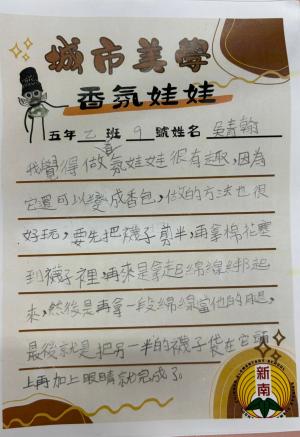 城市美學
香氛娃娃
五年乙班9號姓名吳青翰
我覺得做香氛娃娃很有趣,因為
它還可以變成香包,做的方法也很
好玩,要先把襪子剪半,再拿棉花塞
到襪子裡再來是拿走E綿線綁起
來,然後是再拿一段綿線當他的腿,
最後就是把另一半的襪子袋在它頭
上再加上眼睛就完成了。
新南